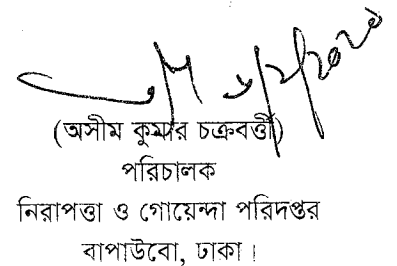 (অসীম কুমার চক্রবর্ত্তী)
পরিচালক
নিরাপত্তা ও গোয়েন্দা পরিদপ্তর
বাপাউবো, ঢাকা।